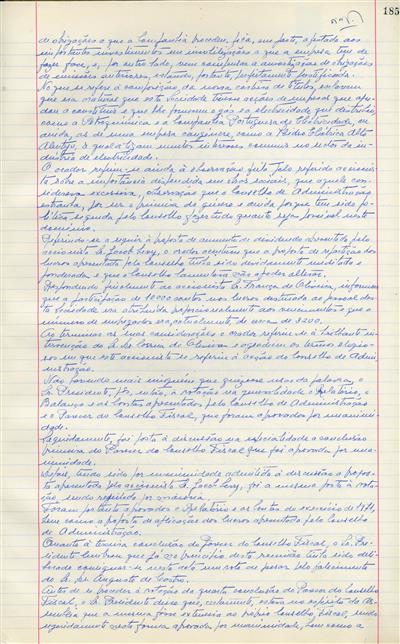 185
de obrigações a que a Companhia procedeu, fica, em parte, afectado aos
importantes investimentos em imobilizações a que a empresa tem de
fazer face, e, por outro lado, vem compensar a amortização de obrigações
de emissões anteriores, estando, portanto, perfeitamente justificada.
No que se refere à composição da nossa carteira de títulos, esclareceu
que era natural que esta sociedade tivesse acções de empresas que aju-
dou a constituir e que lhe fornecem a electricidade que distribui,
como a Petroquímica e a Companhia Portuguesa de Electricidade, ou
ainda, as de uma empresa congénere, como a Hidro Eléctrica Alto
Alentejo, à qual a ligam muitos interesses comuns no sector da in-
dústria de electricidade.
O orador referiu-se ainda à observação feita pelo referido accionis-
ta sobre a importância despendida em obras sociais, que aquele con-
siderou excessiva, observação que o Conselho de Administração
estranha, por ser a primeira do género e ainda porque tem sido po-
lítica seguida pelo Conselho fazer tudo quanto seja possível neste
domínio.
Referindo-se a seguir à proposta de aumento de dividendo apresentada pelo
accionista Jacob Levy, o orador acentuou que a proposta de repartição dos
lucros apresentada pelo Conselho tinha sido devidamente meditada e
ponderada e que o Conselho lamentava não a poder alterar.
Respondendo finalmente ao accionista França de Oliveira, informou
que a participação de 10000 contos nos lucros destinada ao pessoal des-
ta Sociedade era distribuída proporcionalmente aos vencimentos e que o
número de empregados era, actualmente, de cerca de 3200.
Ao terminar as suas considerações o orador referiu-se à brilhante in-
tervenção do Sr. Correia de Oliveira e agradeceu os termos elogio-
sos em que este accionista se referiu à acção do Conselho de Admi-
nistração.
Não havendo mais ninguém que quisesse usar da palavra, o
Sr. Presidente pôs, então, à votação na generalidade o Relatório, o
Balanço e as Contas apresentados pelo Conselho de Administração
e o Parecer do Conselho Fiscal, que foram aprovados por unanimi-
dade.
Seguidamente, foi posta à discussão na especialidade a conclusão
primeira do Parecer do Conselho Fiscal que foi aprovada por una-
nimidade.
Depois, tendo sido por unanimidade admitida à discussão a propos-
ta apresentada pelo accionista Sr. Jacob Levy, foi a mesma posta à vota-
ção, sendo rejeitada por maioria.
Foram portanto aprovados o Relatório e as Contas do exercício de 1971,
bem como a proposta de aplicação dos lucros apresentada pelo Conselho
de Administração.
Quanto à terceira conclusão do Parecer do Conselho Fiscal, o Sr. Pre-
sidente lembrou que já no princípio desta reunião tinha sido deli-
berado consignar-se nesta acta um voto de pesar pelo falecimento
do Sr. Augusto de Castro.
Antes de se proceder à votação da quarta conclusão do Parecer do Conselho
Fiscal, o Sr. Presidente disse que, certamente, estava no espírito da As-
sembleia que a mesma fosse extensiva ao próprio Conselho Fiscal, sendo
seguidamente nesta forma aprovada por unanimidade, bem como a